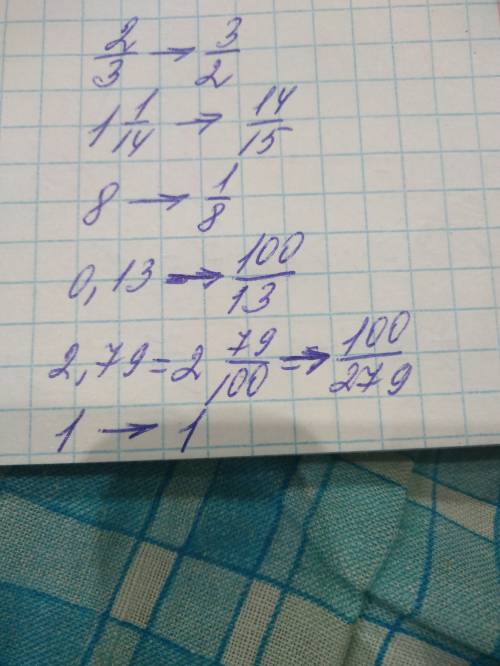 2/3 → 3/2
1 1/14 → 14/15
8 → 1/8
0,13 → 100/13
2,79 = 2 79/100 = → 100/279
1 → 1